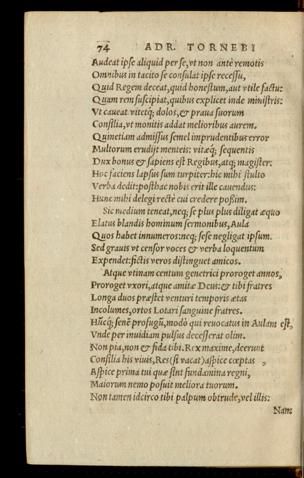 74 ADR. TORNEBI
Audeat ipse aliquid per se, vt non antè remotis
Omnibus in tacito se consulat ipse recessu,
Quid Regem deceat, quid honestum, aut vtile factu:
Quam rem suscipiat, quibus explicet inde ministris:
Vt caueat vitetq; dolos, & praua suorum
Consilia, vt monitis addat melioribus aurem.
Quinetiam admissus semel imprudentibus error
Multorum erudijt menteis: vitæq; sequentis
Dux bonus & sapiens est Regibus, atq; magister.
Hoc faciens lapsus sum turpiter: hic mihi stulto
Verba dedit: posthac nobis erit ille cauendus:
Hunc mihi delegi rectè cui credere possim.
Sic medium teneat, neq; se plus plus diligat æquo
Elatus blandis hominum sermonibus, Aula
Quos habet innumeros: neq; sese negligat ipsum.
Sed grauis vt censor voces & verba loquentum
Expendet: fictis veros distinguet amicos.
Atque vtinam centum genetrici proroget annos,
Proroget vxori, atque amitæ Deus: & tibi fratres
Longa duos præstet venturi temporis ætas
Incolumes, ortos Lotari sanguine fratres.
Hũcq; senē profugũ, modò qui reuocatus in Aulam est,
Vnde per inuidiam pulsus decesserat olim.
Non pia, non & fida tibi, Rex maxime, deerunt
Consilia his viuis, Res (si vacat) aspice cœptas,
Aspice prima tui quæ sint fundamina regni,
Maiorum nemo posuit meliora tuorum.
Non tamen idcirco tibi palpum obtrude, vel illis:
Nam